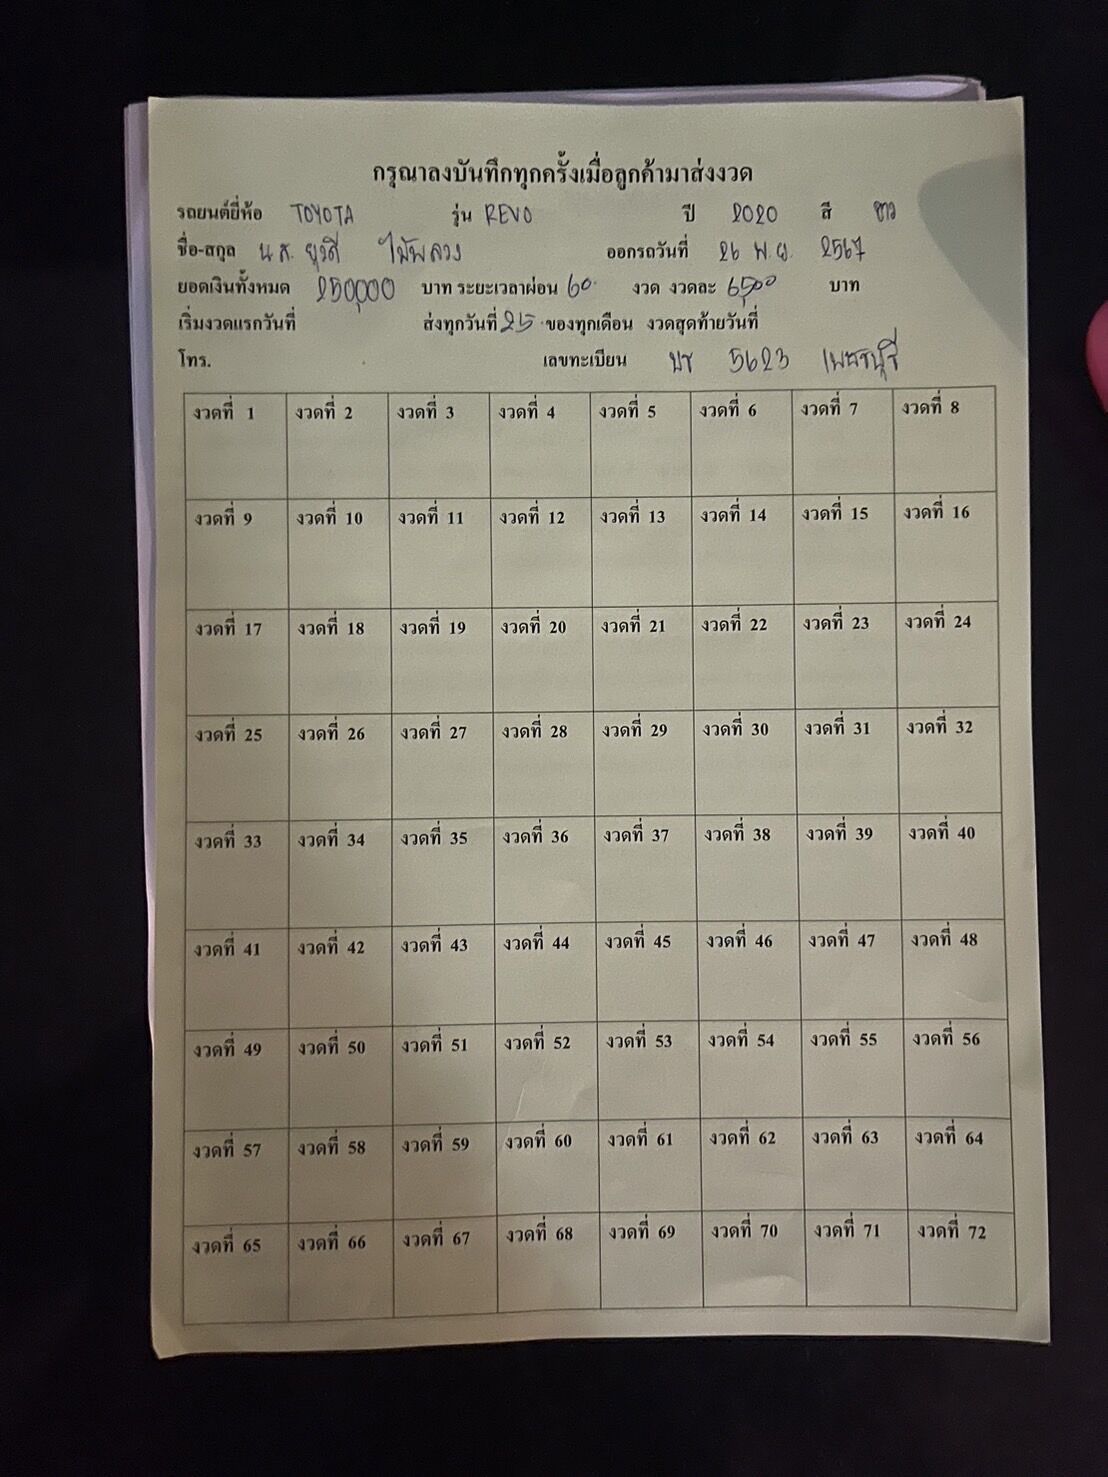 กรุณาลงบันทึกทุกครั้งเมื่อลูกค้ามาส่งงวด
รถยนต์ยี่ห้อ TOYOTA รุ่น REVO ปี 2020 สี ขาว
ชื่อ-สกุล น.ส. ยุวดี ไม้พลวง ออกรถวันที่ 26 พ.ย. 2567
ยอดเงินทั้งหมด 250,000 บาท ระยะเวลาผ่อน 60 งวด งวดละ 6,500 บาท
เริ่มงวดแรกวันที่ ส่งทุกวันที่ 25 ของทุกเดือน งวดสุดท้ายวันที่
โทร. เลขทะเบียน บร 5623 เพชรบุรี
งวดที่ 1 งวดที่ 2 งวดที่ 3 งวดที่ 4 งวดที่ 5 งวดที่ 6 งวดที่ 7 งวดที่ 8
งวดที่ 9 งวดที่ 10 งวดที่ 11 งวดที่ 12 งวดที่ 13 งวดที่ 14 งวดที่ 15 งวดที่ 16
งวดที่ 17 งวดที่ 18 งวดที่ 19 งวดที่ 20 งวดที่ 21 งวดที่ 22 งวดที่ 23 งวดที่ 24
งวดที่ 25 งวดที่ 26 งวดที่ 27 งวดที่ 28 งวดที่ 29 งวดที่ 30 งวดที่ 31 งวดที่ 32
งวดที่ 33 งวดที่ 34 งวดที่ 35 งวดที่ 36 งวดที่ 37 งวดที่ 38 งวดที่ 39 งวดที่ 40
งวดที่ 41 งวดที่ 42 งวดที่ 43 งวดที่ 44 งวดที่ 45 งวดที่ 46 งวดที่ 47 งวดที่ 48
งวดที่ 49 งวดที่ 50 งวดที่ 51 งวดที่ 52 งวดที่ 53 งวดที่ 54 งวดที่ 55 งวดที่ 56
งวดที่ 57 งวดที่ 58 งวดที่ 59 งวดที่ 60 งวดที่ 61 งวดที่ 62 งวดที่ 63 งวดที่ 64
งวดที่ 65 งวดที่ 66 งวดที่ 67 งวดที่ 68 งวดที่ 69 งวดที่ 70 งวดที่ 71 งวดที่ 72